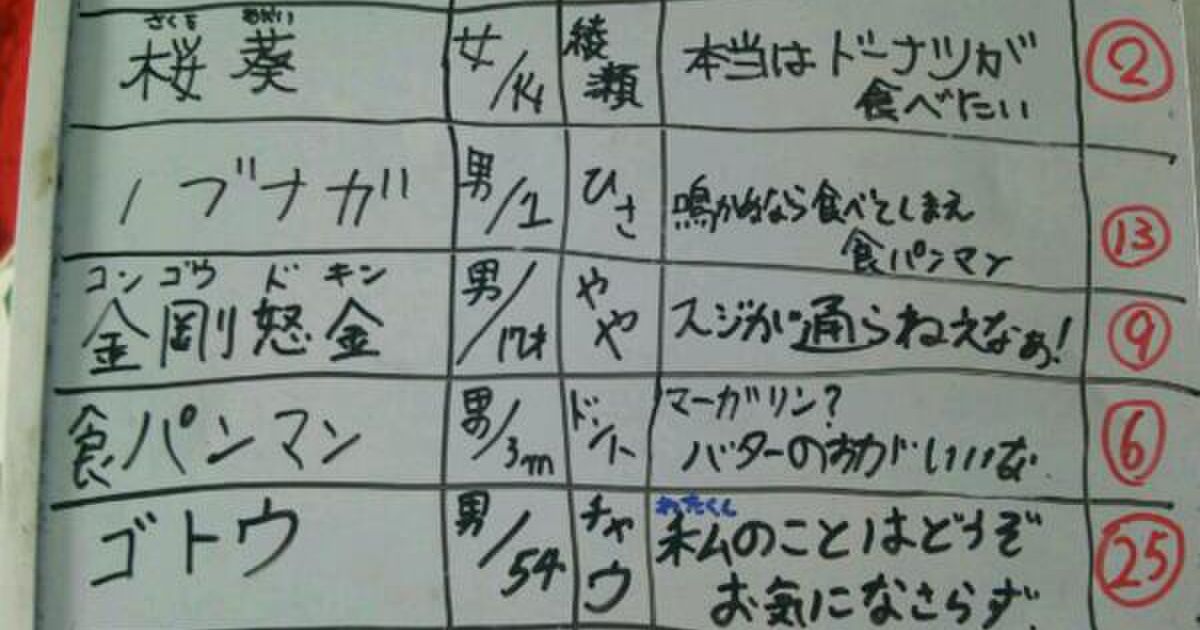 さくら あおい
桜 葵
女/14
綾瀬
本当はドーナツが
食べたい
②
ノブナガ
男/1
ひさ
鳴かぬなら食べてしまえ
食パンマン
⑬
コンゴウ ド キン
金剛怒金
男/17才
やや
スジが通らねえなぁ!
⑨
食パンマン
男/3m
ドント
マーガリン?
バターのおカドいいな
⑥
ゴトウ
男/54
チャウ
わたくし
私のことはどうぞ
お気になさらず。
㉕